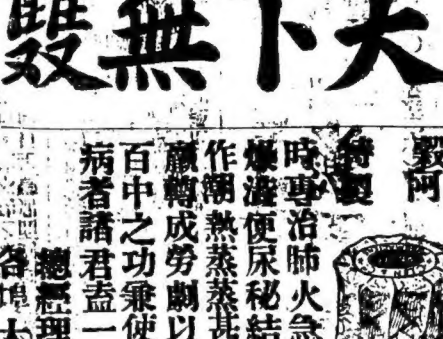 天下無雙
阿
特製
時專治肺火急
便尿秘結
作潮熱蒸蒸甚
轉成勞劇以
百中之功兼使
病者諸君盍一
總經理
各埠大